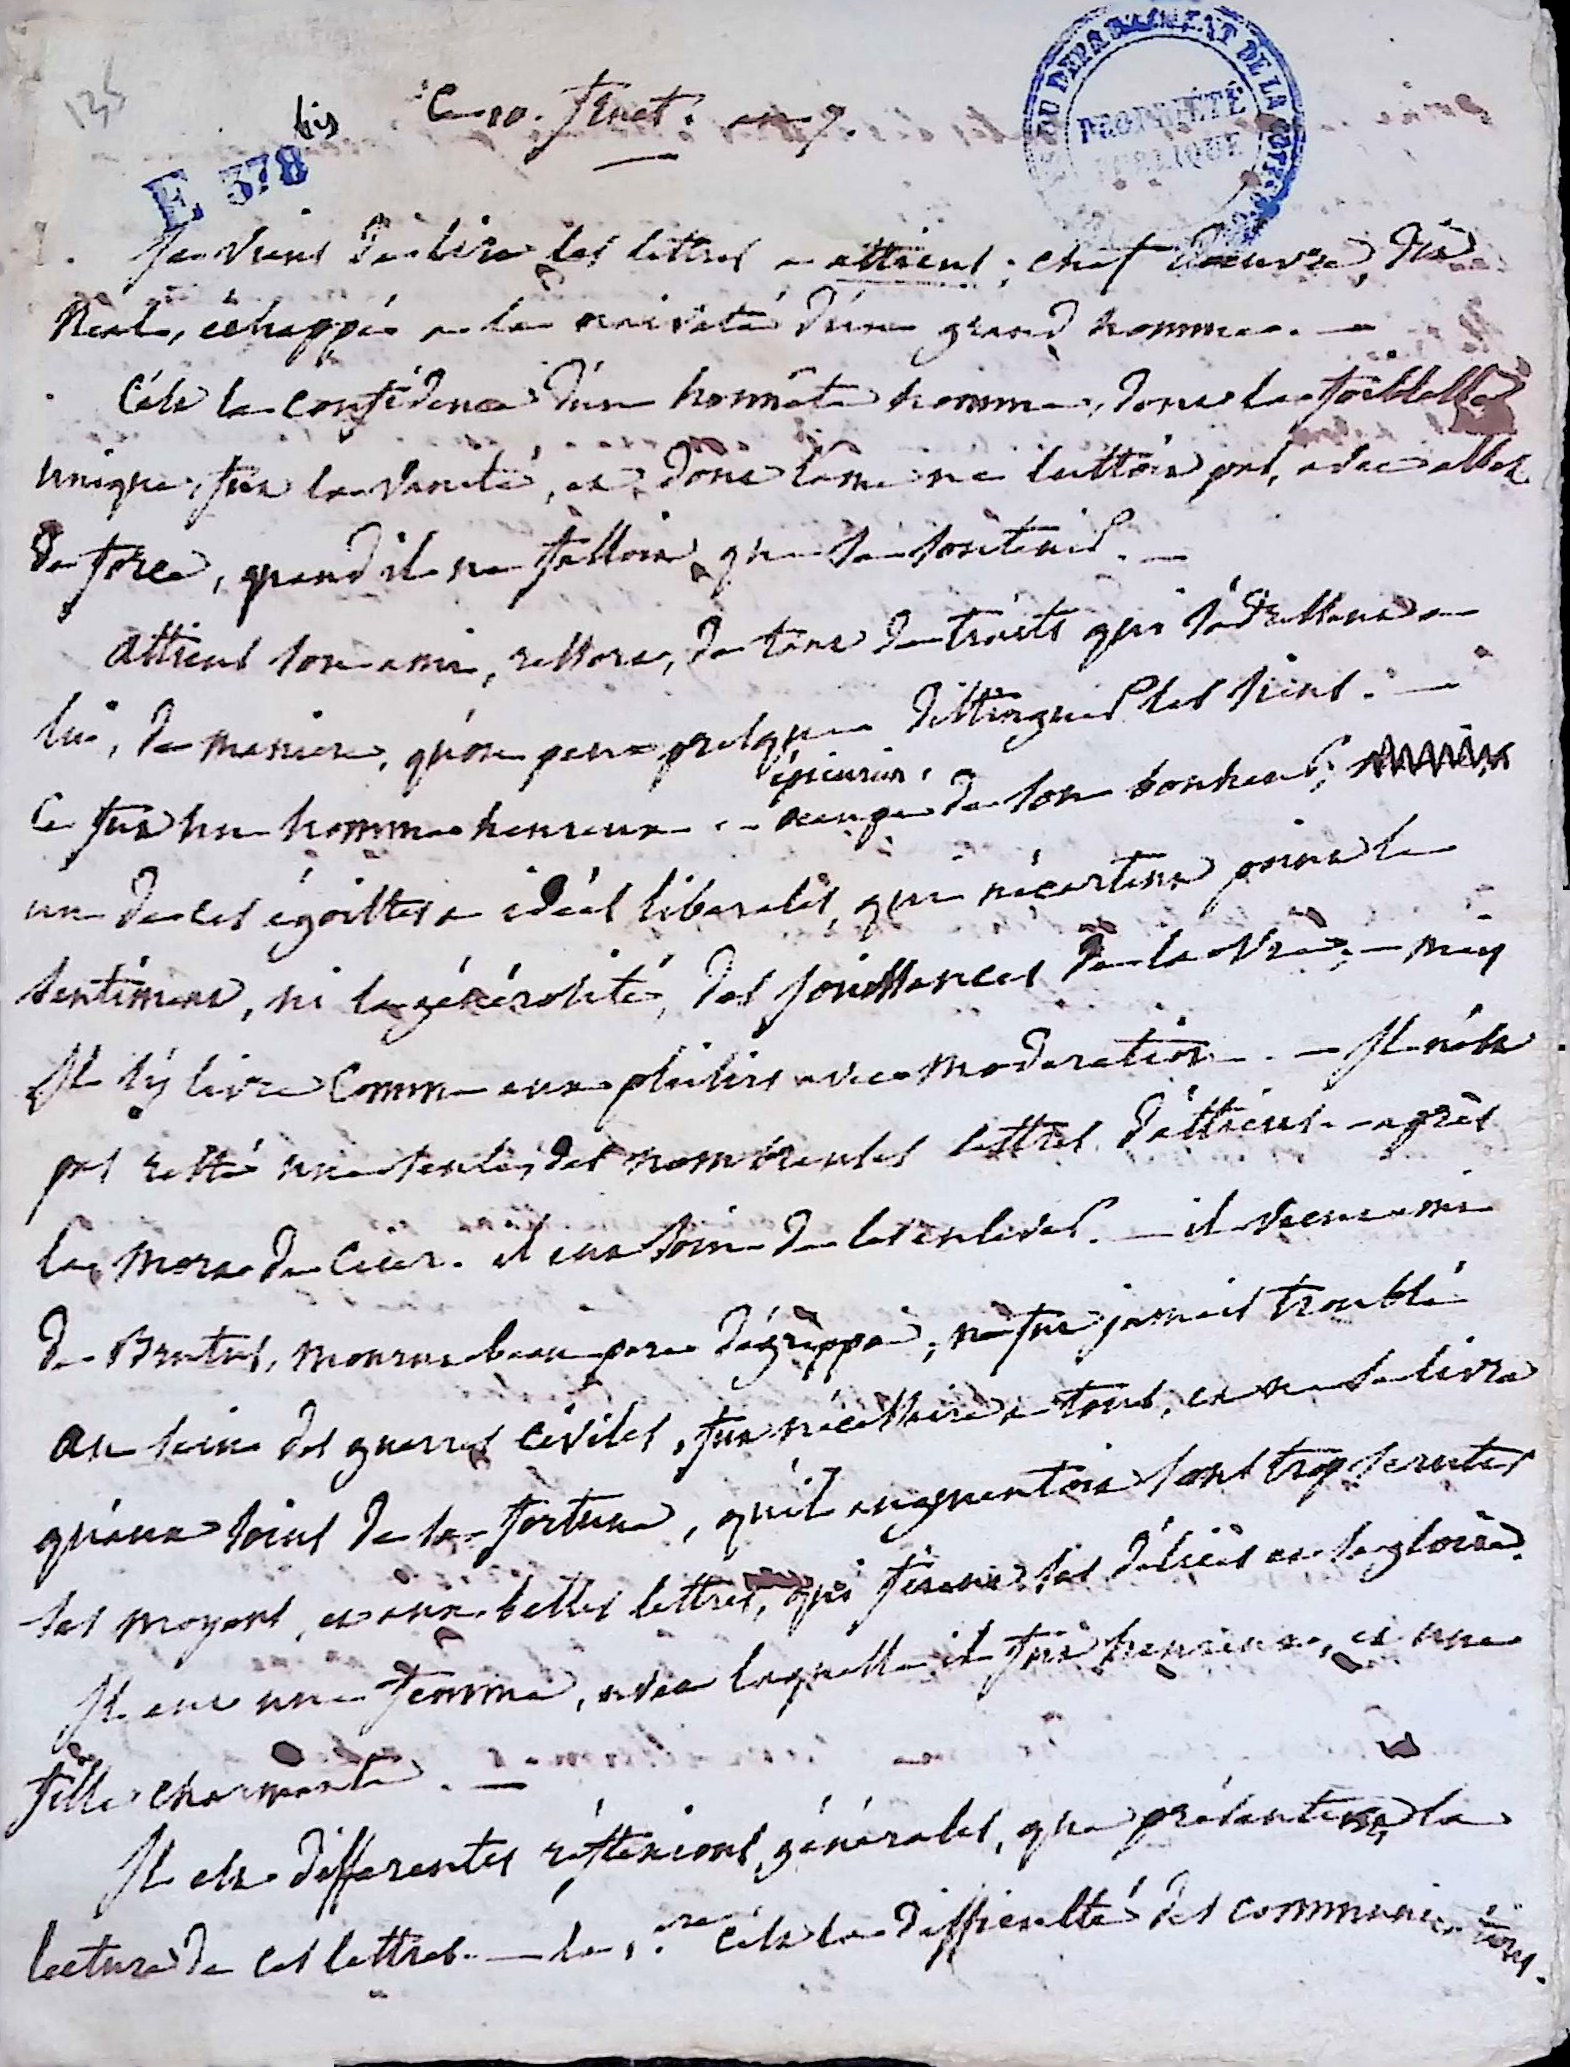 135
E 378 bis
Ce 10. fruct. an 7.
DU DEPARTEMENT DE LA COTE
PROPRIÉTÉ PUBLIQUE
Je viens de lire les lettres a atticus ; chef d'œuvre,
échappé a la naiveté d'un grand homme. —
C'est la confidence d'un honnête homme, dont la foiblesse
unique, fut la vanité, et dont l'âme ne luttoit pas, avec assez
de force, quand il ne falloit que se soutenir. —
atticus son ami, ressort, de tant de traits qui s'adressent a
lui, de maniere, qu'on peut presque distinguer les siens. —
Ce fut un homme heureux. — épicurien, occupé de son bonheur,
un de ces égoistes a idées liberales, qui n'écartent point le
sentiment, ni la générosité, des jouissances de la vie, — mais
Il s'y livre comme aux plaisirs avec moderation. — Il n'est
pas resté une seule, des nombreuses lettres d'atticus. — après
la mort de Cicer. il eut soin de les enlever. — il vécut ami
de Brutus, mourut beau pere d'agrippa ; ne fut jamais troublé
au sein des guerres civiles, fut nécessaire a tous, et ne se livra
qu'aux soins de sa fortune, qu'il augmentoit sans trop scruter
les moyens, et aux belles lettres, qui firent ses délices et sa gloire.
Il eut une femme, avec laquelle il fut heureux, et une
fille charmante. —
Il est differentes réflexions générales, que présentent la
lecture de ces lettres. — la 1.ere c'est la difficulté des communications.